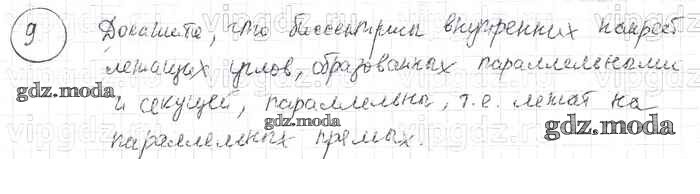 9 Докажите, что биссектрисы внутренних накрест
лежащих углов, образованных параллельными
gdz.moda
и секущей, параллельны, т.е. лежат на
gdz.moda
gdz.moda
параллельных прямых.